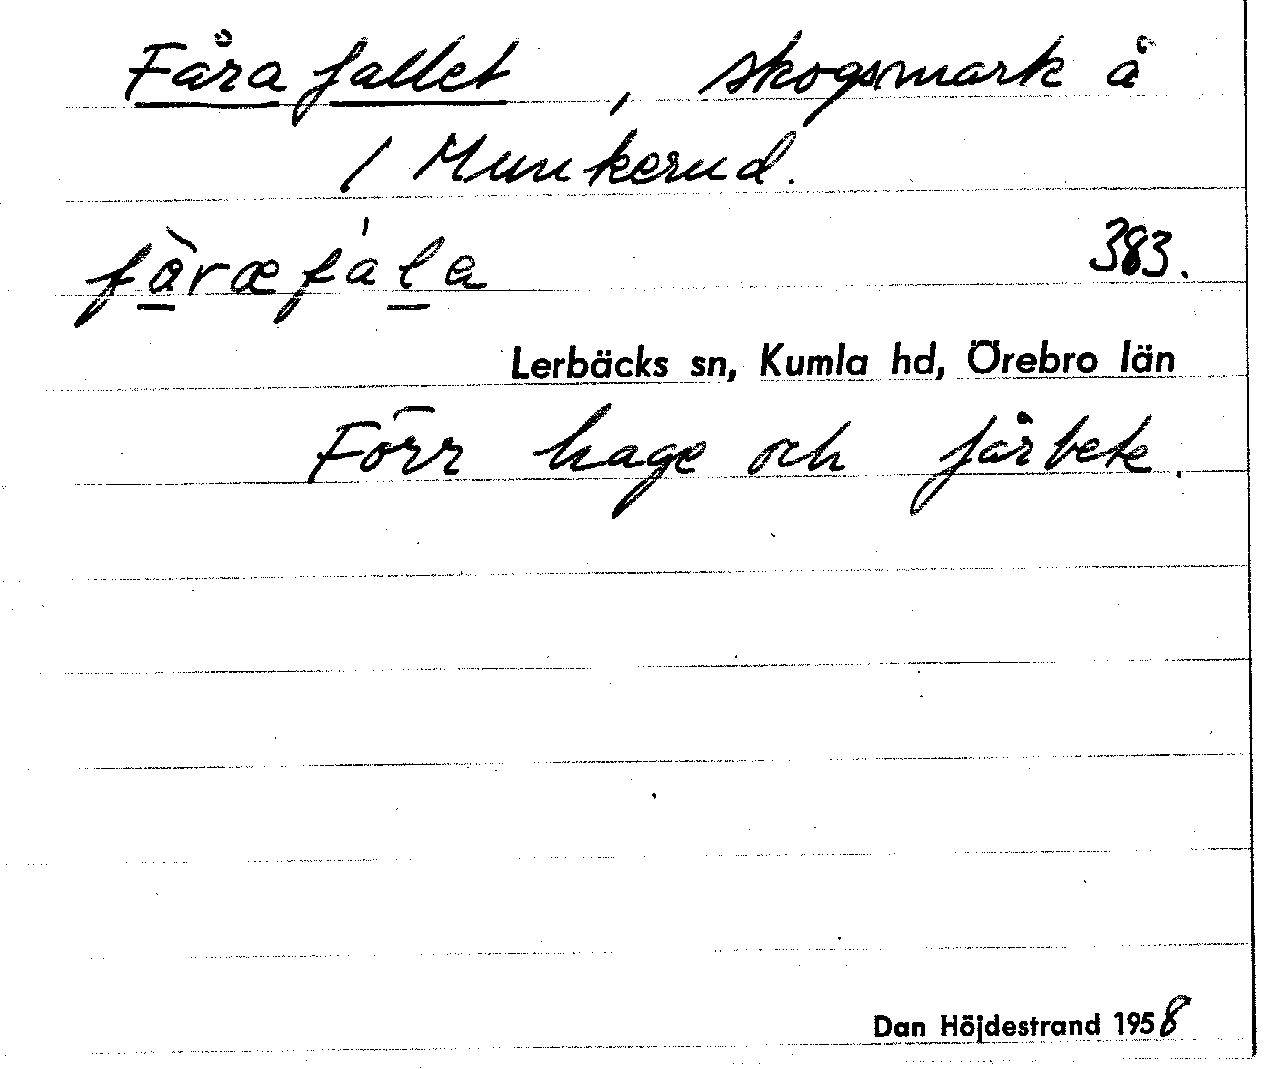 Fårafallet, skogsmark å
/ Munkerud.
fåræfala 383.
Lerbäcks sn, Kumla hd, Örebro län
Förr hage och fårbete.
Dan Höjdestrand 1958